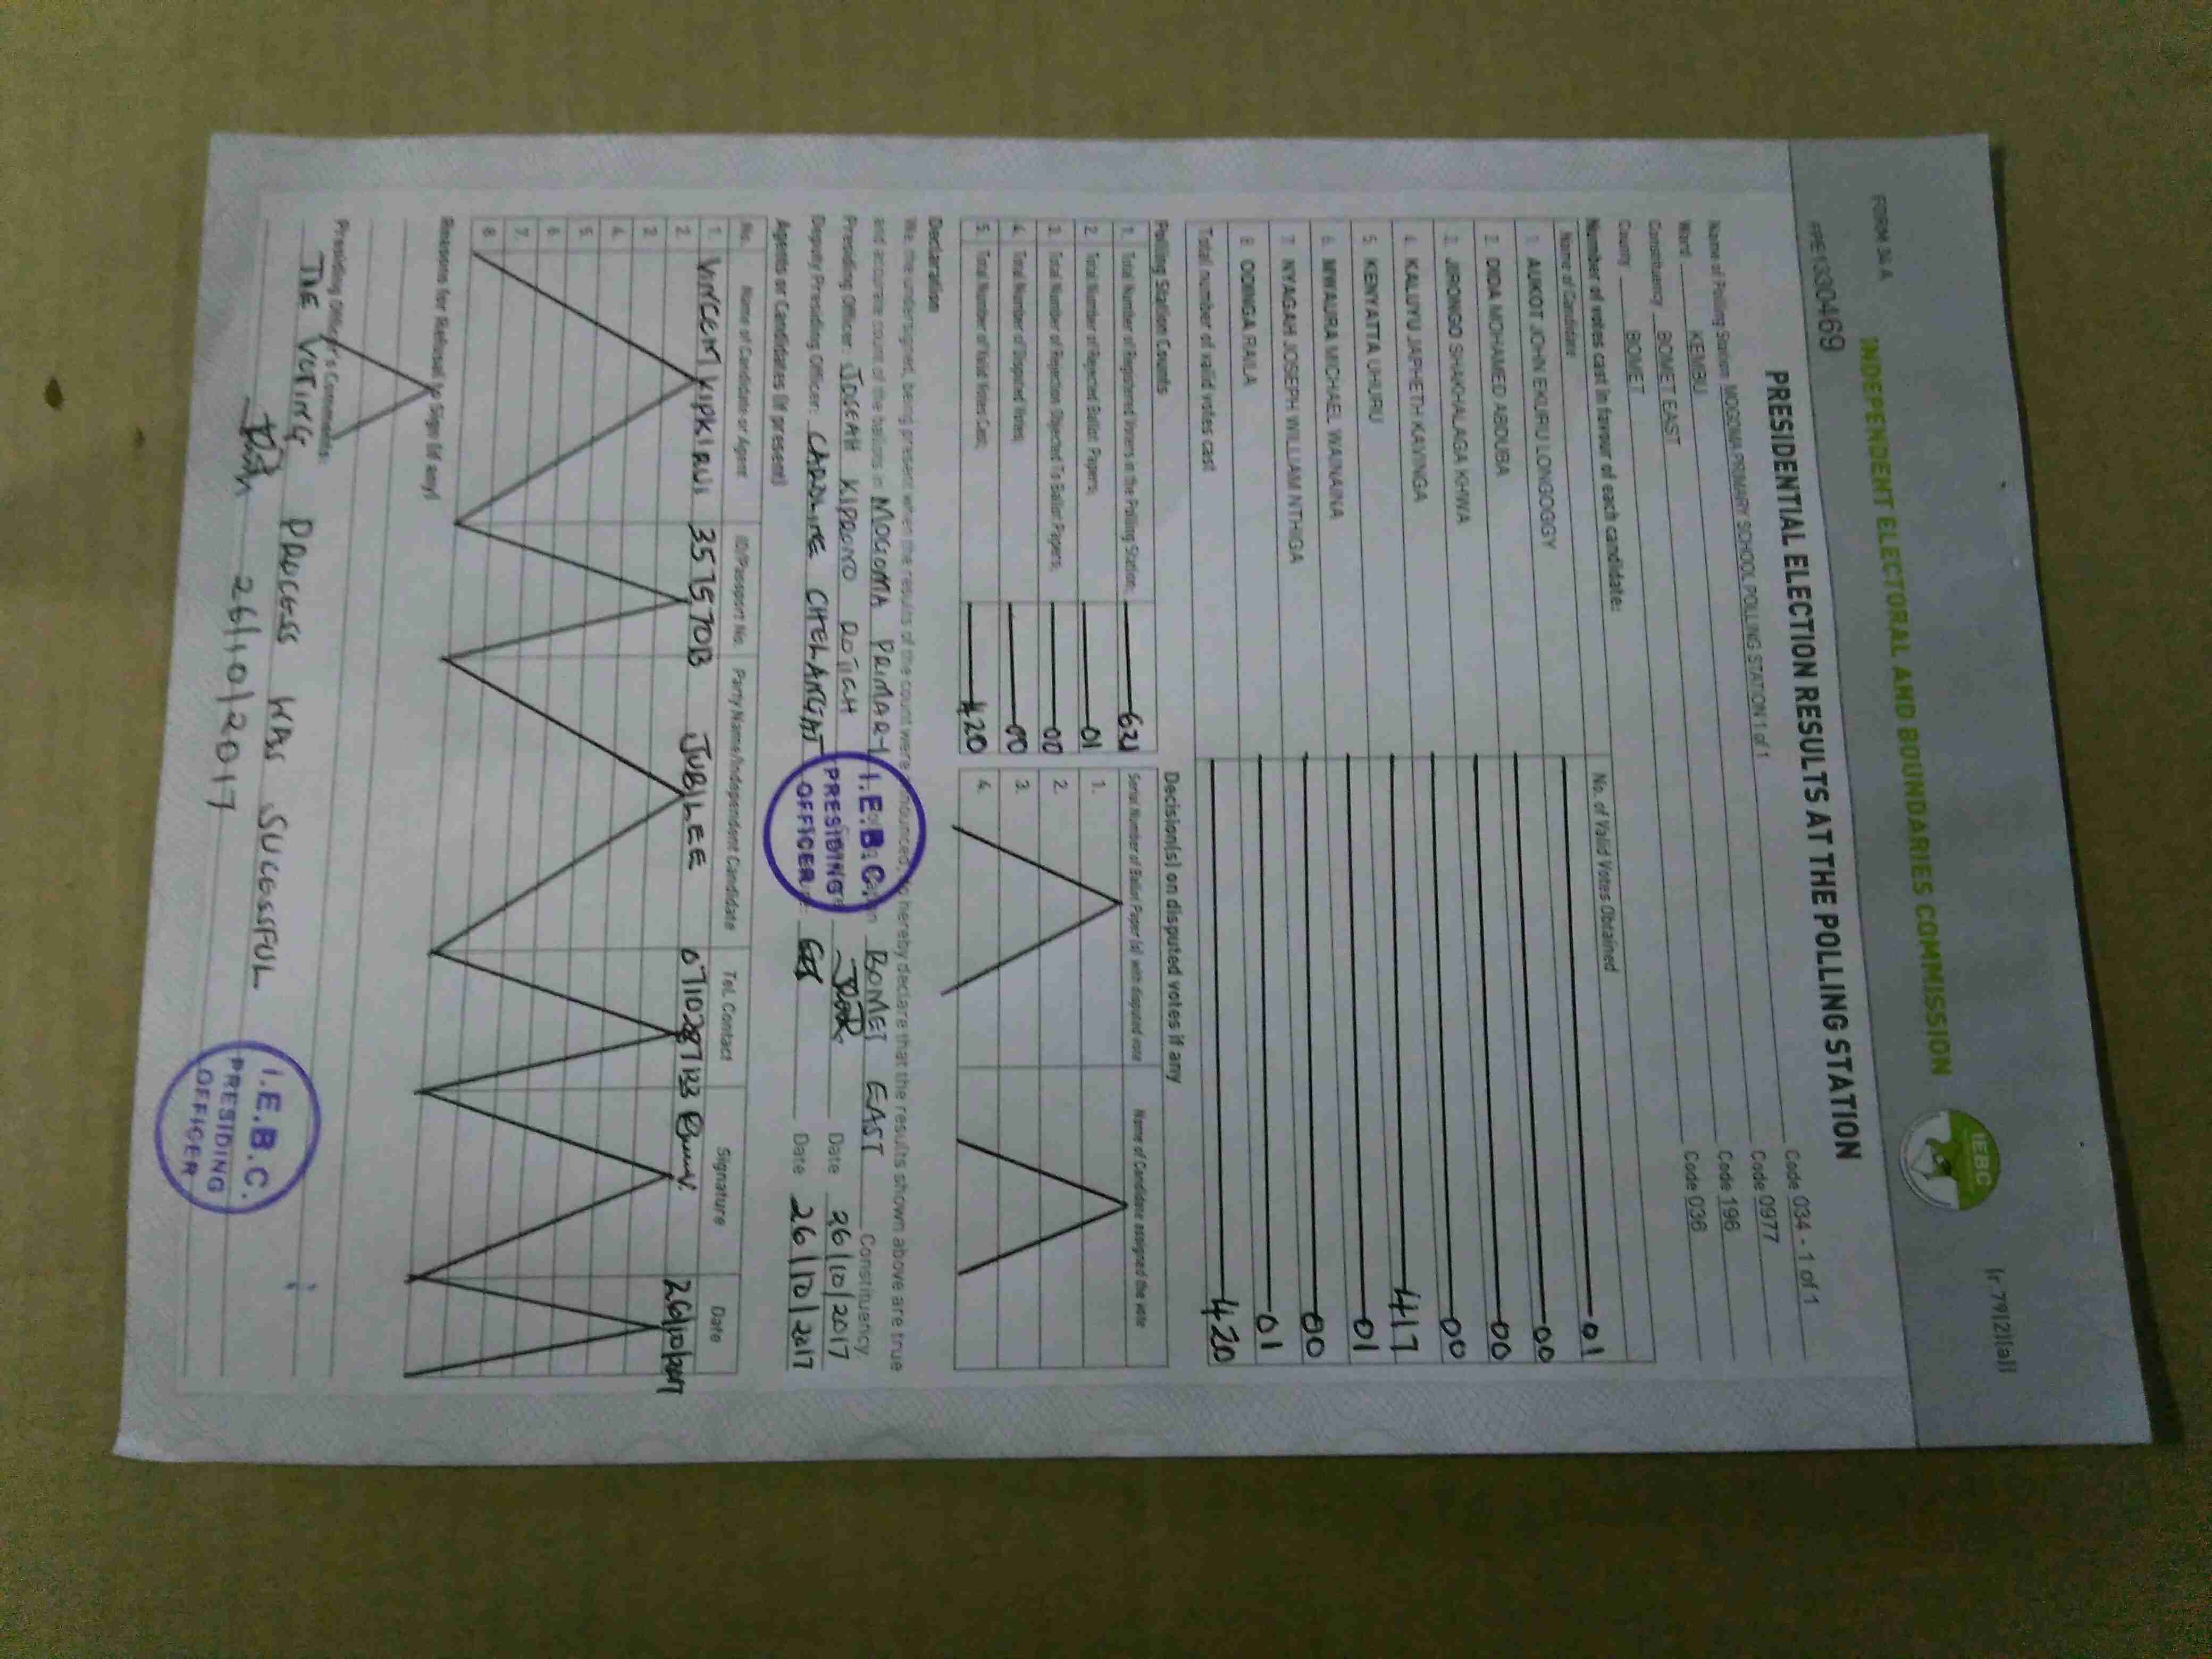 FORM 34 A
[r.79[2][a]]
INDEPENDENT ELECTORAL AND BOUNDARIES COMMISSION
IEBC
PRESIDENTIAL ELECTION RESULTS AT THE POLLING STATION
Name of Polling Station MOGOMA PRIMARY SCHOOL POLLING STATION 1 of 1 Code 034 - 1 of 1
Ward KEMBU Code 0977
Constituency BOMET EAST Code 196
County BOMET Code 036
Number of votes cast in favour of each candidate:
Name of Candidate No. of Valid Votes Obtained
1. AUKOT JOHN EKURU LONGOGGY 01
2. DIDA MOHAMED ABDUBA 00
3. JIRONGO SHAKHALAGA KHWA 00
4. KALUYU JAPHETH KAVINGA 00
5. KENYATTA UHURU 417
6. MWAURA MICHAEL WAINAINA 01
7. NYAGAH JOSEPH WILLIAM NTHIGA 00
8. ODINGA RAILA 01
Total number of valid votes cast 420
Polling Station Counts
1. Total Number of Registered Voters in the Polling Station; 621
2. Total Number of Rejected Ballot Papers; 01
3. Total Number of Rejection Objected To Ballot Papers; 00
4. Total Number of Disputed Votes; 00
5. Total Number of Valid Votes Cast; 420
Decision(s) on disputed votes if any
Serial Number of Ballot Paper (s) with disputed vote Name of Candidate assigned the vote
1.
2.
3.
4.
Declaration
We, the undersigned, being present when the results of the count were announced, do hereby declare that the results shown above are true
and accurate count of the ballots in MOGOMA PRIMARY BOMET EAST Constituency.
Presiding Officer: JOSEAH KIPRONO ROTICH Date 26/10/2017
Deputy Presiding Officer: CAROLINE CHELANGAT Date 26/10/2017
I.E.B.C.
PRESIDING
OFFICER
Agents or Candidates (if present)
No. Name of Candidate or Agent ID/Passport No. Party Name/Independent Candidate Tel. Contact Signature Date
1. VINCENT KIPKIRUI JUBILEE 26/10/2017
2.
3.
4.
5.
6.
7.
8.
Reasons for Refusal to Sign (if any)
Presiding Officer's Comments:
THE VOTING PROCESS WAS SUCESSFUL
26/10/2017
I.E.B.C.
PRESIDING
OFFICER